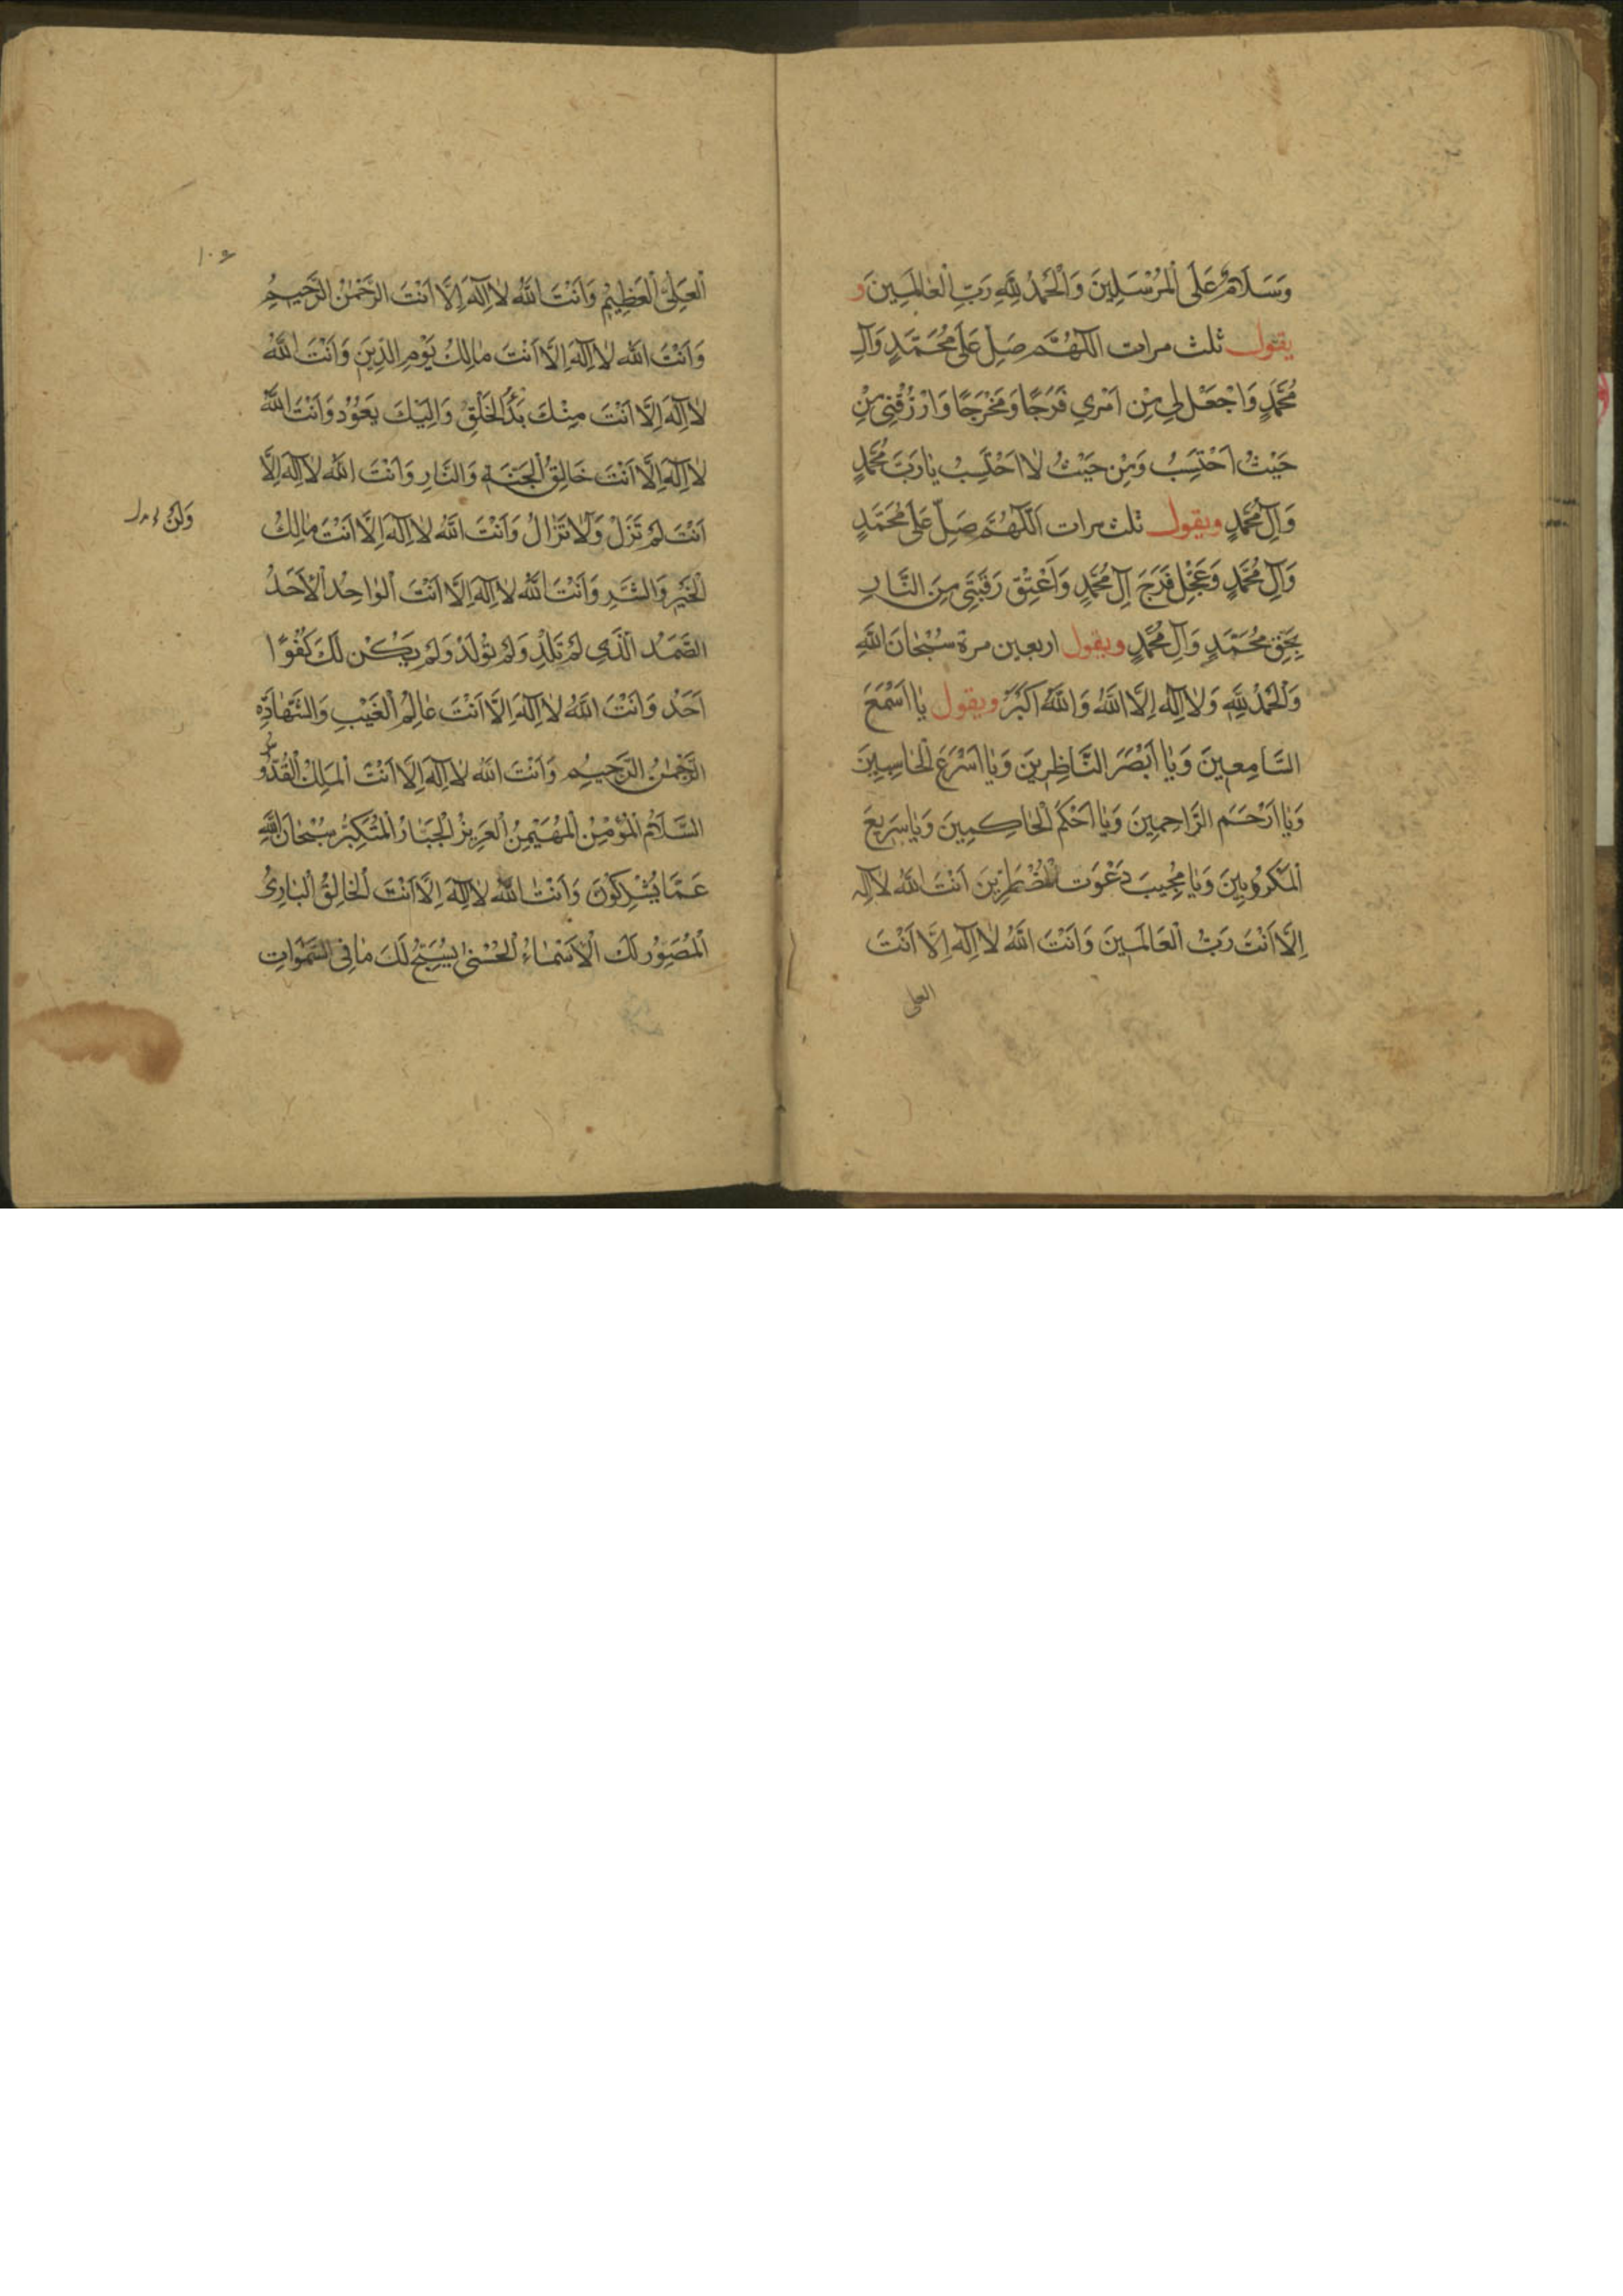 وَسَلَامٌ عَلَى الْمُرْسَلِينَ وَالْحَمْدُ لِلَّهِ رَبِّ الْعَالَمِينَ وَ
يقول ثلث مرات اللَّهُمَّ صَلِّ عَلَى مُحَمَّدٍ وَآلِ
مُحَمَّدٍ وَاجْعَلْ لِي مِنْ اَمْرِي فَرَجًا وَمَخْرَجًا وَارْزُقْنِي مِنْ
حَيْثُ اَحْتَسِبُ وَمِنْ حَيْثُ لَا اَحْتَسِبُ يَا رَبَّ مُحَمَّدٍ
وَآلِ مُحَمَّدٍ ويقول ثلث مرات اَللَّهُمَّ صَلِّ عَلَى مُحَمَّدٍ
وَآلِ مُحَمَّدٍ وَعَجِّلْ فَرَجَ آلِ مُحَمَّدٍ وَاَعْتِقْ رَقَبَتِي مِنَ النَّارِ
بِحَقِّ مُحَمَّدٍ وَآلِ مُحَمَّدٍ ويقول اربعين مرة سُبْحَانَ اللَّهِ
وَالْحَمْدُ لِلَّهِ وَلَا اِلَهَ اِلَّا اللَّهُ وَاللَّهُ اَكْبَرُ ويقول يَا اَسْمَعَ
السَّامِعِينَ وَيَا اَبْصَرَ النَّاظِرِينَ وَيَا اَسْرَعَ الْحَاسِبِينَ
وَيَا اَرْحَمَ الرَّاحِمِينَ وَيَا اَحْكَمَ الْحَاكِمِينَ وَيَا صَرِيعَ
الْمَكْرُوبِينَ وَيَا مُجِيبَ دَعْوَت الْمُضْطَرِّينَ اَنْتَ اللَّهُ لَا اِلَهَ
اِلَّا اَنْتَ رَبُّ الْعَالَمِينَ وَاَنْتَ اللَّهُ لَا اِلَهَ اِلَّا اَنْتَ
العلى
١٠٩
الْعَلِيُّ الْعَظِيمُ وَاَنْتَ اللَّهُ لَا اِلَهَ اِلَّا اَنْتَ الرَّحْمٰنُ الرَّحِيمُ
وَاَنْتَ اللَّهُ لَا اِلَهَ اِلَّا اَنْتَ مَالِكُ يَوْمِ الدِّينِ وَاَنْتَ اللَّهُ
لَا اِلَهَ اِلَّا اَنْتَ مِنْكَ بَدْأُ الْخَلْقِ وَاِلَيْكَ يَعُوْدُ وَاَنْتَ اللَّهُ
لَا اِلَهَ اِلَّا اَنْتَ خَالِقُ الْجَنَّةِ وَالنَّارِ وَاَنْتَ اللَّهُ لَا اِلَهَ اِلَّا
اَنْتَ لَمْ تَزَلْ وَلَا تَزَالُ وَاَنْتَ اللَّهُ لَا اِلَهَ اِلَّا اَنْتَ مَالِكُ
وَلَنْ
الْخَيْرِ وَالشَّرِ وَاَنْتَ اللَّهُ لَا اِلَهَ اِلَّا اَنْتَ الْوَاحِدُ الْاَحَدُ
الصَّمَدُ الَّذِي لَمْ تَلِدْ وَلَمْ تُولَدْ وَلَمْ يَكُنْ لَكَ كُفُوًا
اَحَدٌ وَاَنْتَ اللَّهُ لَا اِلَهَ اِلَّا اَنْتَ عَالِمُ الْغَيْبِ وَالشَّهَادَةِ
الرَّحْمٰنُ الرَّحِيمُ وَاَنْتَ اللَّهُ لَا اِلَهَ اِلَّا اَنْتَ الْمَلِكُ الْقُدُّوسُ
السَّلَامُ الْمُؤْمِنُ الْمُهَيْمِنُ الْعَزِيزُ الْجَبَّارُ الْمُتَكَبِّرُ سُبْحَانَ اللَّهِ
عَمَّا يُشْرِكُونَ وَاَنْتَ اللَّهُ لَا اِلَهَ اِلَّا اَنْتَ الْخَالِقُ الْبَارِئُ
الْمُصَوِّرُ لَكَ الْاَسْمَاءُ الْحُسْنَى يُسَبِّحُ لَكَ مَا فِي السَّمَوَاتِ